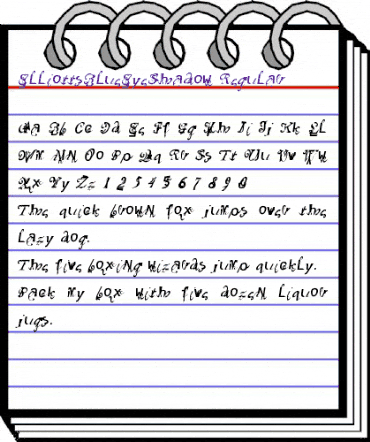 ElliottsBlueEyeShadow Regular
Aa Bb Cc Dd Ee Ff Gg Hh Ii Jj Kk Ll
Mm Nn Oo Pp Qq Rr Ss Tt Uu Vv Ww
Xx Yy Zz 1 2 3 4 5 6 7 8 9 0
The quick brown fox jumps over the
lazy dog.
The five boxing wizards jump quickly.
Pack my box with five dozen liquor
jugs.